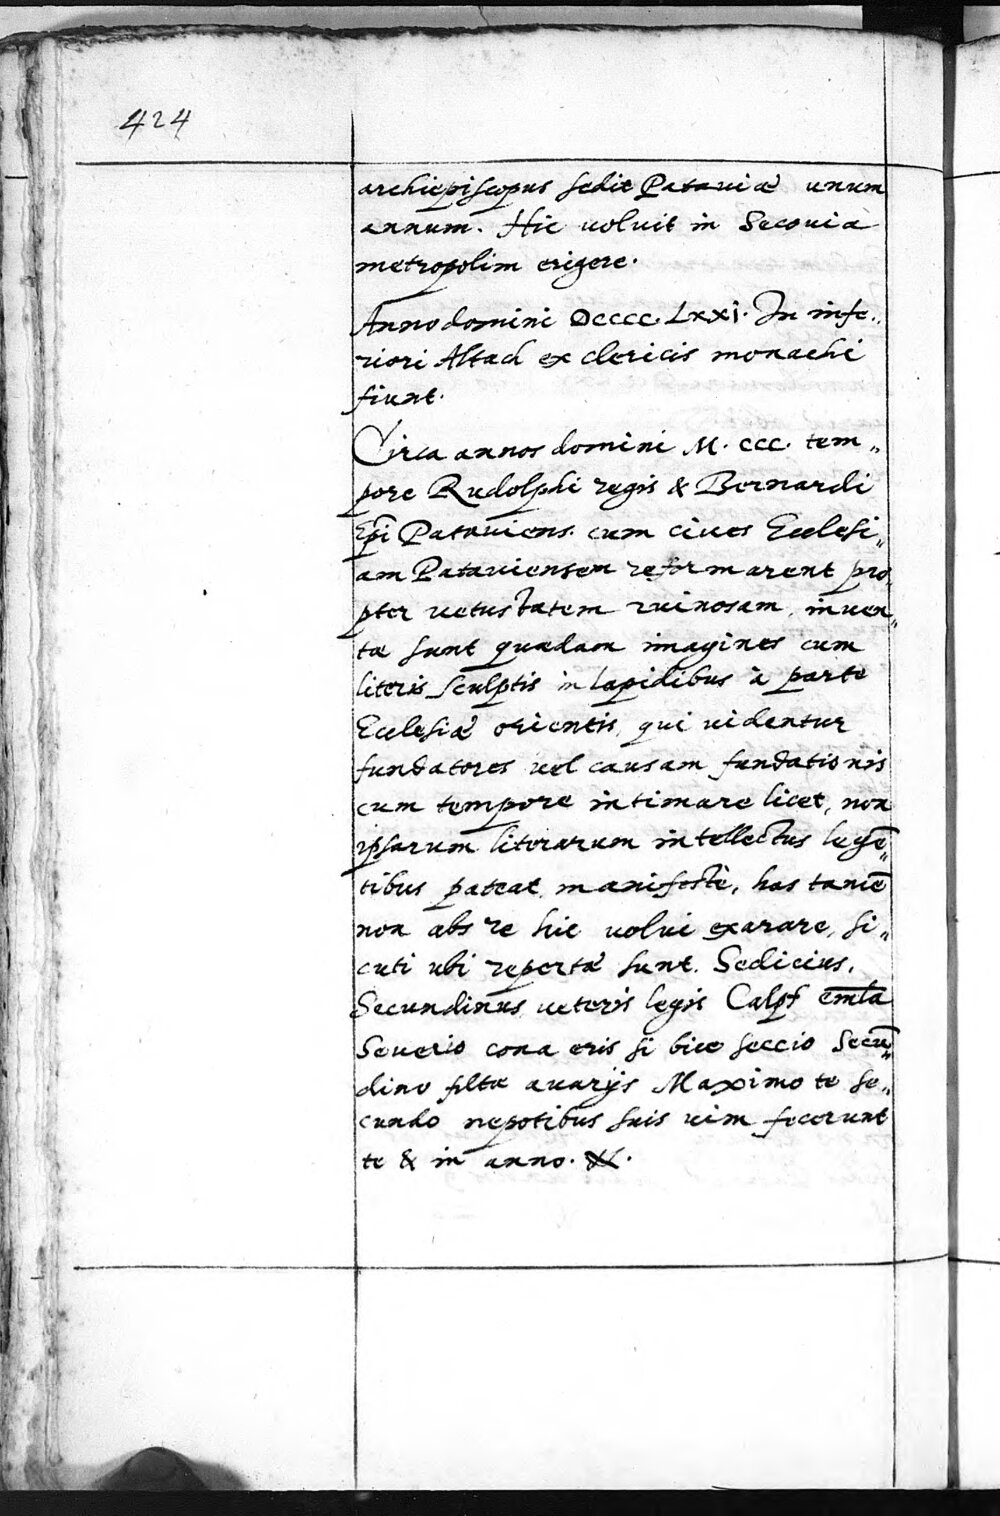 424
archiepiscopus sedit Pataviæ unum
annum. Hic voluit in Secovia
metropolim erigere.
Anno domini DCCCC. Lxxi. In infe„
riori Altach ex clericis monachi
fiunt.
Circa annos domini M. CCC. tem„
pore Rudolphi regis & Bernardi
Epi̅ Pataviens. cum cives Ecclesi„
am Pataviensem reformarent pro„
pter vetustatem ruinosam, inven„
tæ sunt quædam imagines cum
literis sculptis in lapidibus à parte
Ecclesiæ orientis, qui videntur
fundatores vel causam fundationis
cum tempore intimare licet, non
ipsarum literarum intellectus lege̅„
tibus pateat manifestè, has tame̅
non abs re hic volui exarare, si„
cuti ubi repertæ sunt. Sedicius,
Secundinus veteris legis Calpf emla̅
Severio cona eris si bice seccio Secu̅„
dino filtæ avarijs Maximo te se„
cundo nepotibus suis vim fecerunt
te & in anno.